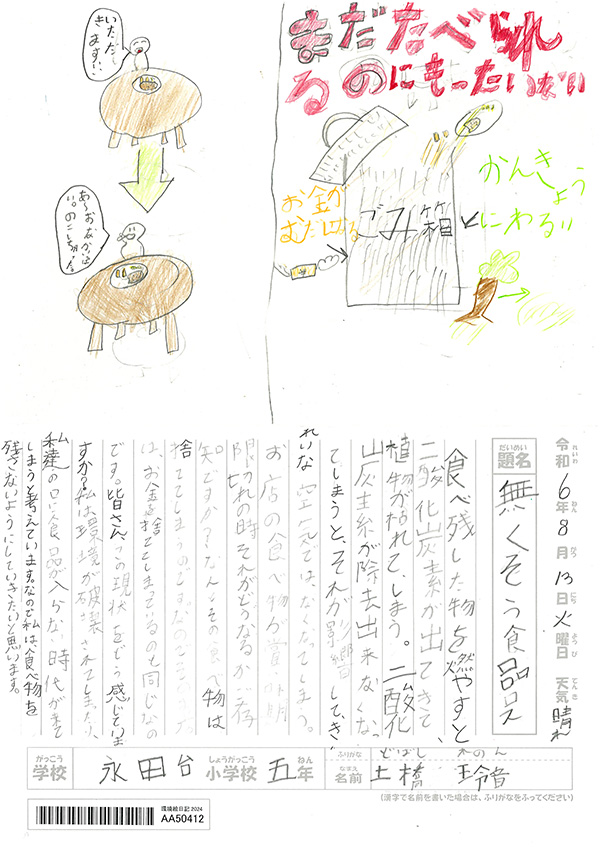 まだたべられ
るのにもったいない
かんきょう
にわるい
お金が
むだになる
ごみ箱
いただ
きます、、
あ〜おなかいっぱ
い。のこしちゃえ
令和6年8月13日火曜日 天気 晴れ
れいわ ねん がつ にち ようび てんき
だいめい
題名
無くそう食品ロス
食べ残した物を燃やすと
二酸化炭素が出てきて、
植物が枯れてしまう。二酸化
炭素が除去出来なくなっ
てしまうと、それが影響して、き
れいな空気ではなくなってしまう。
お店の食べ物が賞味期
限切れの時それがどうなるかご存
知ですか?なんとその食べ物は
捨ててしまうのです。なのでこの
は、お金を捨ててしまっているのも同じなの
です。皆さんこの現状をどう感じていま
すか?私は環境が破壊されてしまったり、
私達の口に食品が入らない時代がきて
しまうと考えています。なので私は、食べ物を
残さないようにしていきたいと思います。
がっこう しょうがっこう ねん ふりがな どばし れのん
学校 永田台 小学校 五年 なまえ 名前 土橋 玲音
(漢字で名前を書いた場合は、ふりがなをふってください)
環境絵日記2024
AA50412